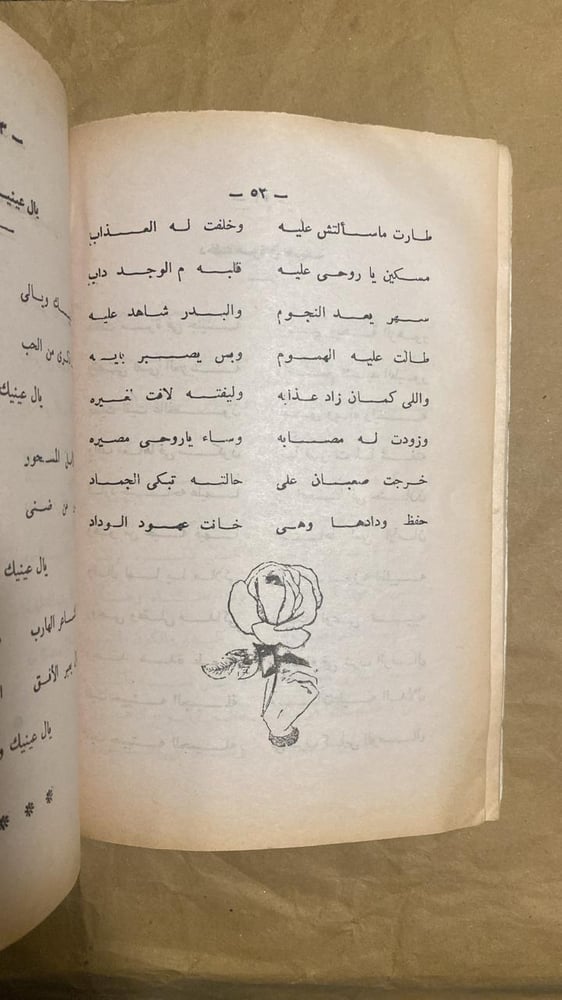 — ٥٣ —
طارت ماسألتش عليه وخلفت له العذاب
مسكين يا روحى عليه قلبه م الوجد داب
سهر يعد النجوم والبدر شاهد عليه
طالت عليه الهموم وبس يصبر بايه
واللى كمان زاد عذابه وليفته لافت لغيره
وزودت له مصابه وساء ياروحى مصيره
خرجت صعبان على حالته تبكى الجماد
حفظ ودادها وهى خانت عهود الوداد
يال عينيك
وبالى
من الحب
يال عينيك
المسحور
من ضنى
يال عينيك
الهارب
الأفق
يال عينيك و
* * *